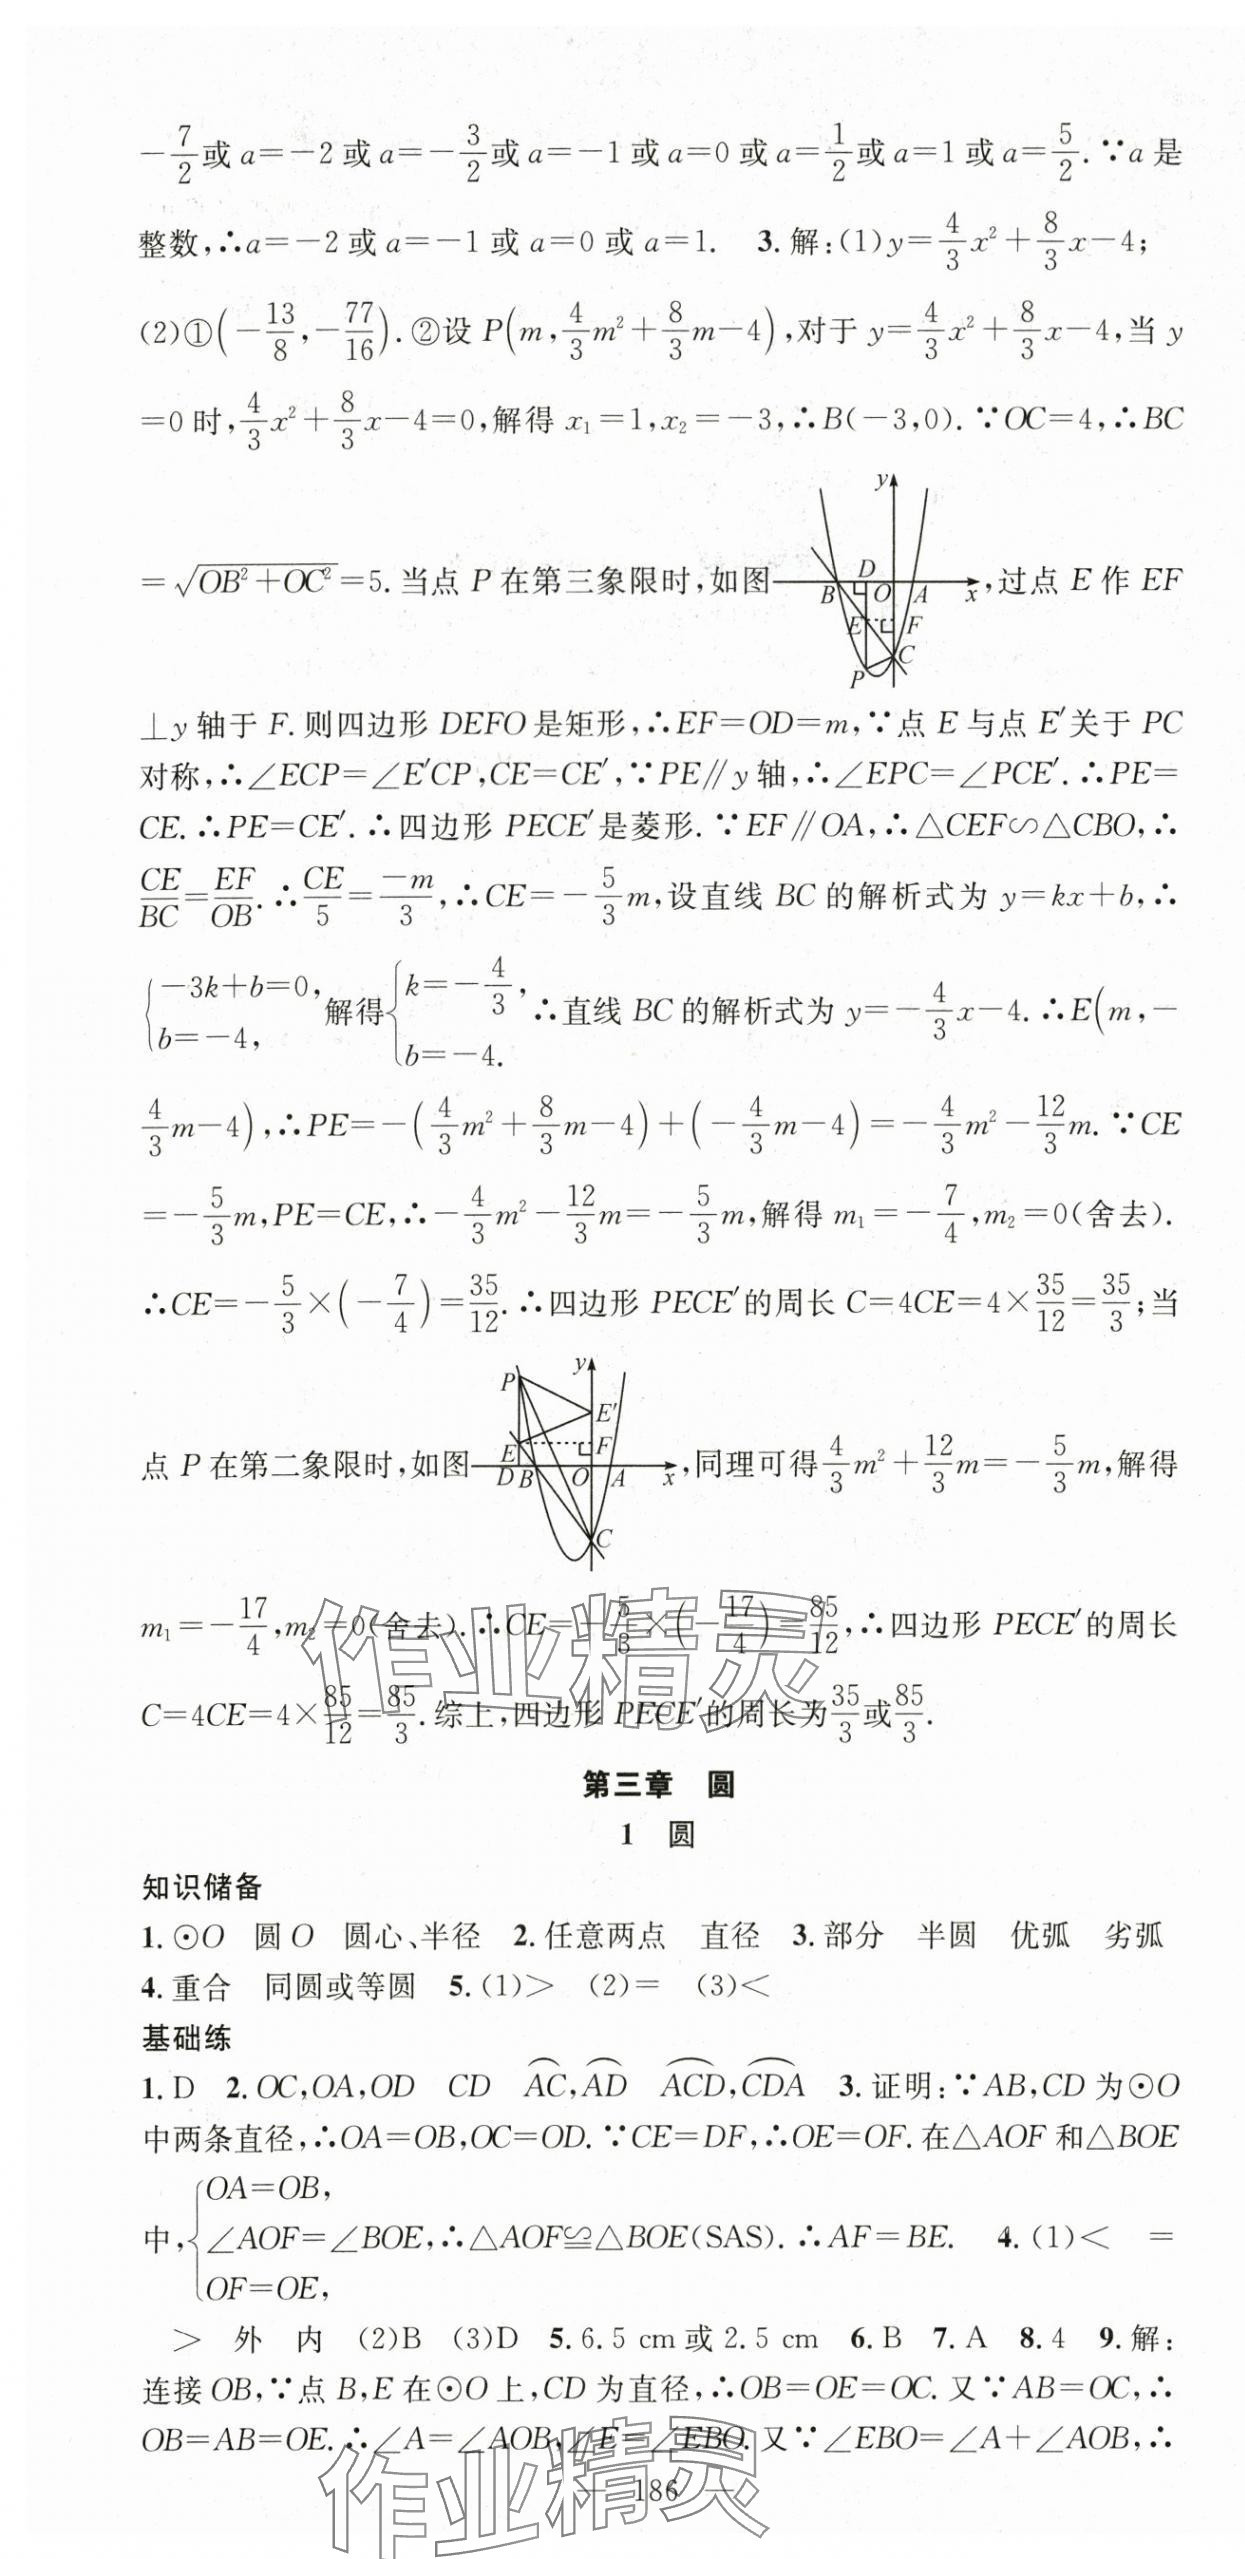 -7/2或a=-2或a=-3/2或a=-1或a=0或a=1/2或a=1或a=5/2.∵a是
整数,∴a=-2或a=-1或a=0或a=1. 3.解:(1)y=4/3x²+8/3x-4;
(2)①(-13/8,-77/16).②设P(m,4/3m²+8/3m-4),对于y=4/3x²+8/3x-4,当y
=0时,4/3x²+8/3x-4=0,解得x₁=1,x₂=-3,∴B(-3,0).∵OC=4,∴BC
=√(OB²+OC²)=5.当点P在第三象限时,如图 y D B O A x E F C P ,过点E作EF
⊥y轴于F.则四边形DEFO是矩形,∴EF=OD=m,∵点E与点E′关于PC
对称,∴∠ECP=∠E′CP,CE=CE′,∵PE∥y轴,∴∠EPC=∠PCE′.∴PE=
CE.∴PE=CE′.∴四边形PECE′是菱形.∵EF∥OA,∴△CEF∽△CBO,∴
CE/BC=EF/OB.∴CE/5=-m/3,∴CE=-5/3m,设直线BC的解析式为y=kx+b,∴
{-3k+b=0, b=-4, 解得{k=-4/3, b=-4. ∴直线BC的解析式为y=-4/3x-4.∴E(m,-
4/3m-4),∴PE=-(4/3m²+8/3m-4)+(-4/3m-4)=-4/3m²-12/3m.∵CE
=-5/3m,PE=CE,∴-4/3m²-12/3m=-5/3m,解得m₁=-7/4,m₂=0(舍去).
∴CE=-5/3×(-7/4)=35/12.∴四边形PECE′的周长C=4CE=4×35/12=35/3;当
点P在第二象限时,如图 y P E′ E F D B O A x C ,同理可得4/3m²+12/3m=-5/3m,解得
m₁=-17/4,m₂=0(舍去).∴CE=-5/3×(-17/4)=85/12,∴四边形PECE′的周长
C=4CE=4×85/12=85/3.综上,四边形PECE′的周长为35/3或85/3.
作业精灵
第三章 圆
1 圆
知识储备
1.⊙O 圆O 圆心、半径 2.任意两点 直径 3.部分 半圆 优弧 劣弧
4.重合 同圆或等圆 5.(1)> (2)= (3)<
基础练
1.D 2.OC,OA,OD CD ⌒AC,⌒AD ⌒ACD,⌒CDA 3.证明:∵AB,CD为⊙O
中两条直径,∴OA=OB,OC=OD.∵CE=DF,∴OE=OF.在△AOF和△BOE
中,{OA=OB, ∠AOF=∠BOE, OF=OE, ∴△AOF≌△BOE(SAS).∴AF=BE. 4.(1)< =
> 外 内 (2)B (3)D 5.6.5 cm或2.5 cm 6.B 7.A 8.4 9.解:
连接OB,∵点B,E在⊙O上,CD为直径,∴OB=OE=OC.又∵AB=OC,∴
OB=AB=OE.∴∠A=∠AOB,∠E=∠EBO.又∵∠EBO=∠A+∠AOB,∴
— 186 —
作业精灵